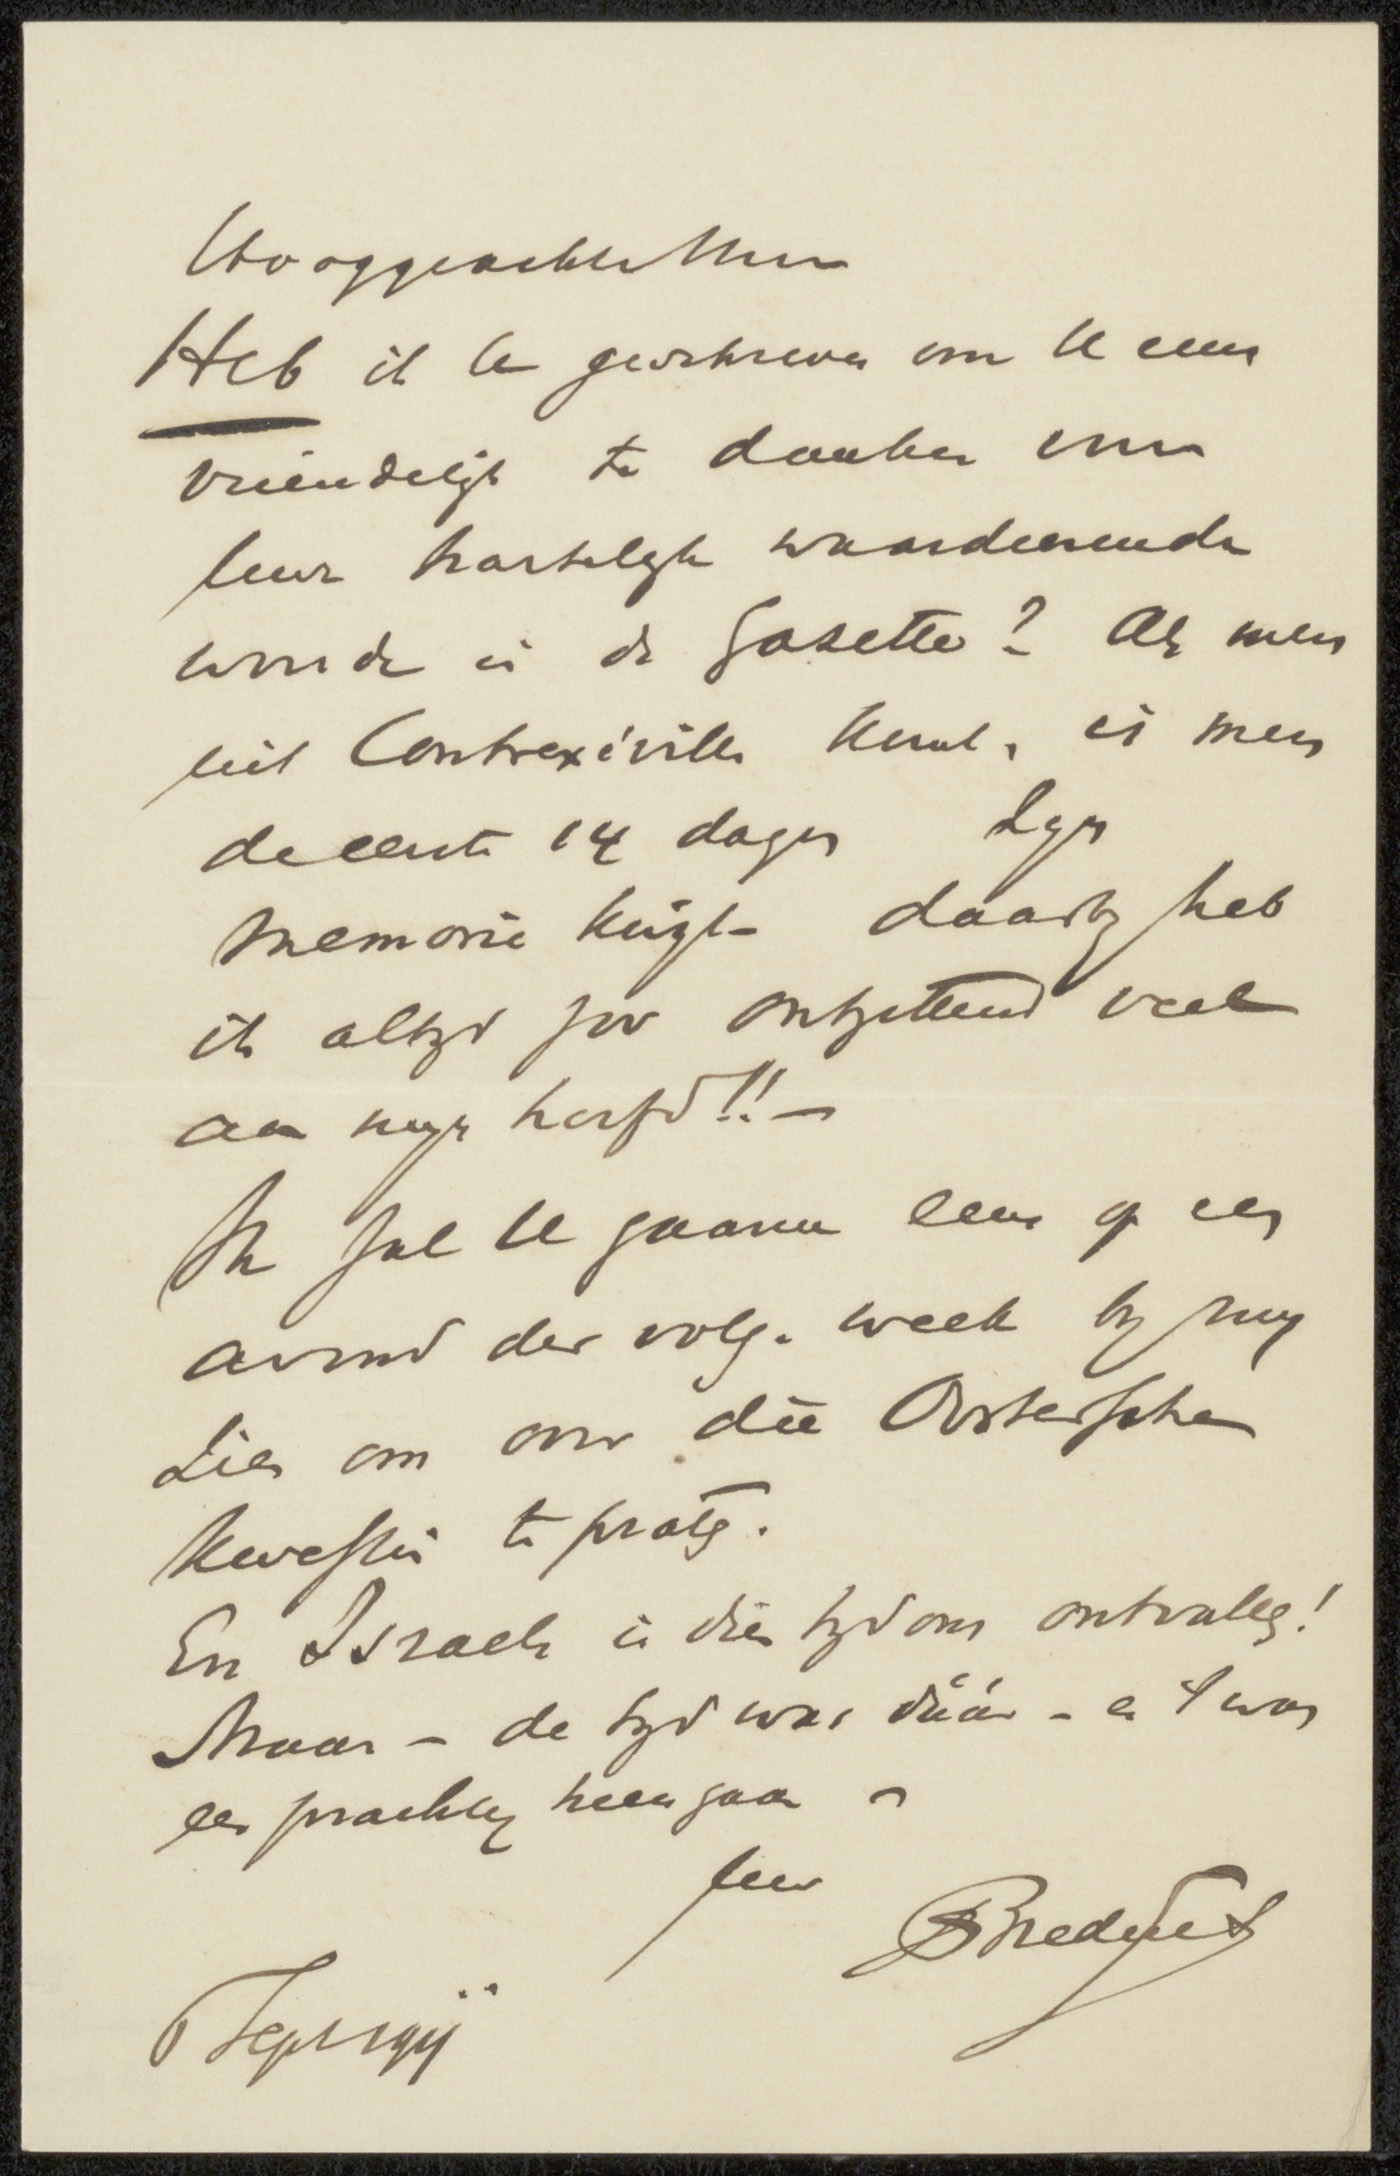 Hooggeachte Heer
Heb ik U geschreven om U eens
vriendelijk te danken voor
Uwe hartelijke waardeerende
woorde in de Gazette? Als men
uit Contrexéville komt, is men
de eerste 14 dagen zijn
memorie kwijt - daarbij heb
ik altijd zoo ontzettend veel
aan mijn hoofd!! -
Ik zal U gaarne eens op een
avond der volg. week bij mij
zien om over die Oostersche
kwestie te praten.
En Israels in dien tijd ons ontvallen!
Maar - de tijd was dáár - en 't was
een prachtig heengaan -
Uw
ABredius
7 Sept 1911